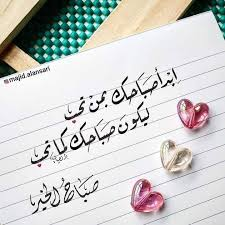 majid.alansari
ابدأ صباحك بمن تحب
ليكون صباحك كما تحب
صباح الخير